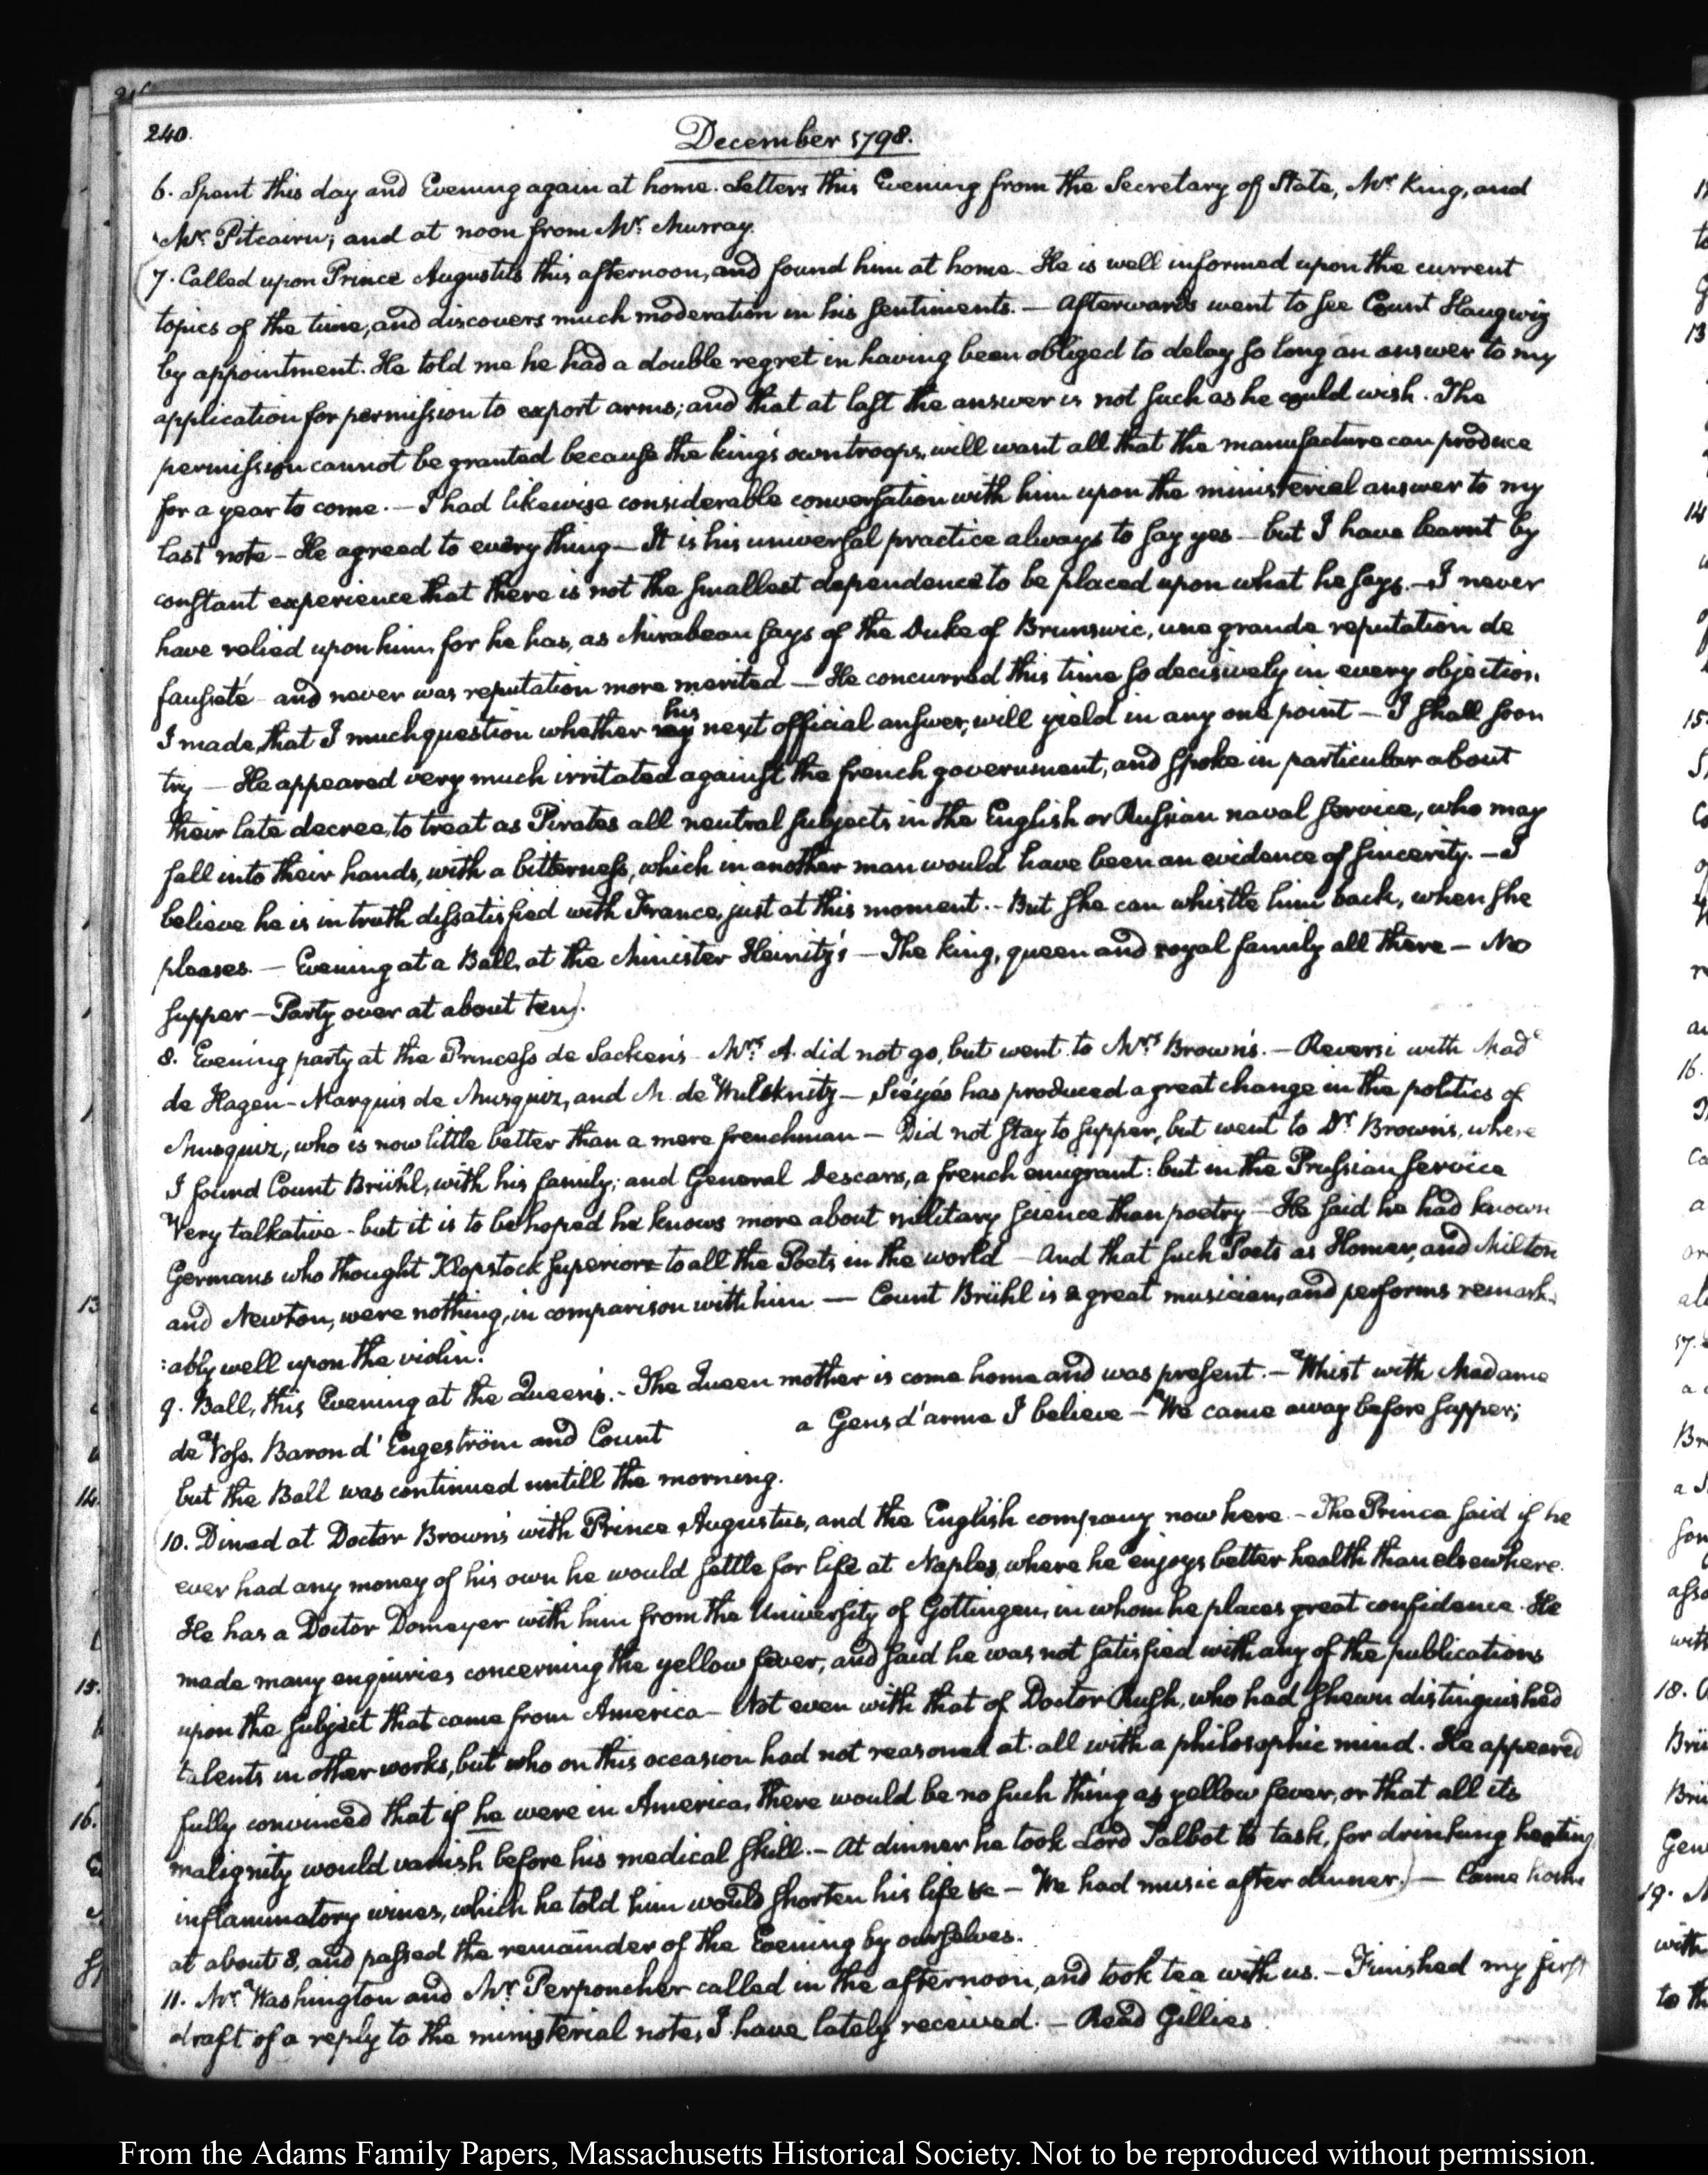 240.
December 1798.
6. Spent this day and Evening again at home. Letters this Evening from the Secretary of State, Mr. King, and
Mr. Pitcairn; and at noon from Mr. Murray.
7. Called upon Prince Augustus this afternoon, and found him at home. He is well informed upon the current
topics of the time, and discovers much moderation in his sentiments. — Afterwards went to see Count Haugwiz
by appointment. He told me he had a double regret in having been obliged to delay so long an answer to my
application for permission to export arms; and that at last the answer is not such as he could wish. The
permission cannot be granted because the king's own troops, will want all that the manufacture can produce
for a year to come. — I had likewise considerable conversation with him upon the ministerial answer to my
last note — He agreed to every thing — It is his universal practice always to say yes — but I have learnt by
constant experience that there is not the smallest dependence to be placed upon what he says. — I never
have relied upon him, for he has, as Mirabeau says of the Duke of Brunswic, une grande reputation de
fausseté and never was reputation more merited — He concurred this time so decisively in every objection
I made, that I much question whether his next official answer, will yield in any one point — I shall soon
try — He appeared very much irritated against the french government, and spoke in particular about
their late decree, to treat as Pirates all neutral subjects in the English or Russian naval service, who may
fall into their hands, with a bitterness, which in another man would have been an evidence of sincerity. — I
believe he is in truth dissatisfied with France, just at this moment. — But she can whistle him back, when she
pleases. — Evening at a Ball, at the Minister Heinitz's — The king, queen and royal family all there — No
supper — Party over at about ten).
8. Evening party at the Princess de Sacken's Mrs. A. did not go, but went to Mrs. Brown's. — Reversi with Made
de Hagen — Marquis de Musquiz, and M. de Wulcknitz — Siéyés has produced a great change in the politics of
Musquiz, who is now little better than a mere frenchman — Did not stay to supper, but went to Dr. Brown's, where
I found Count Brühl, with his family; and General Descars, a french emigrant: but in the Prussian service
Very talkative — but it is to be hoped he knows more about military science than poetry — He said he had known
Germans who thought Klopstock superior to all the Poets in the world — And that such Poets as Homer, and Milton
and Newton, were nothing, in comparison with him — Count Brühl is a great musician, and performs remark-
:ably well upon the violin.
9. Ball, this Evening at the Queen's. — The Queen mother is come home and was present. — Whist with Madame
de Voss, Baron d'Engeström and Count a Gens d'arme I believe — We came away before supper;
but the Ball was continued untill the morning.
10. Dined at Doctor Brown's with Prince Augustus, and the English company now here. — The Prince said if he
ever had any money of his own he would settle for life at Naples, where he enjoys better health than elsewhere.
He has a Doctor Domeyer with him from the University of Gottingen, in whom he places great confidence. He
made many enquiries concerning the yellow fever, and said he was not satisfied with any of the publications
upon the subject that came from America — Not even with that of Doctor Rush, who had shewn distinguished
talents in other works, but who on this occasion had not reasoned at all with a philosophic mind. He appeared
fully convinced that if he were in America, there would be no such thing as yellow fever, or that all its
malignity would vanish before his medical skill. — At dinner he took Lord Talbot to task, for drinking heating
inflammatory wines, which he told him would shorten his life &c — We had music after dinner.) — Came home
at about 8, and passed the remainder of the Evening by ourselves.
11. Mr. Washington and Mr. Perponcher called in the afternoon, and took tea with us. — Finished my first
draft of a reply to the ministerial note, I have lately received. — Read Gillies
From the Adams Family Papers, Massachusetts Historical Society. Not to be reproduced without permission.